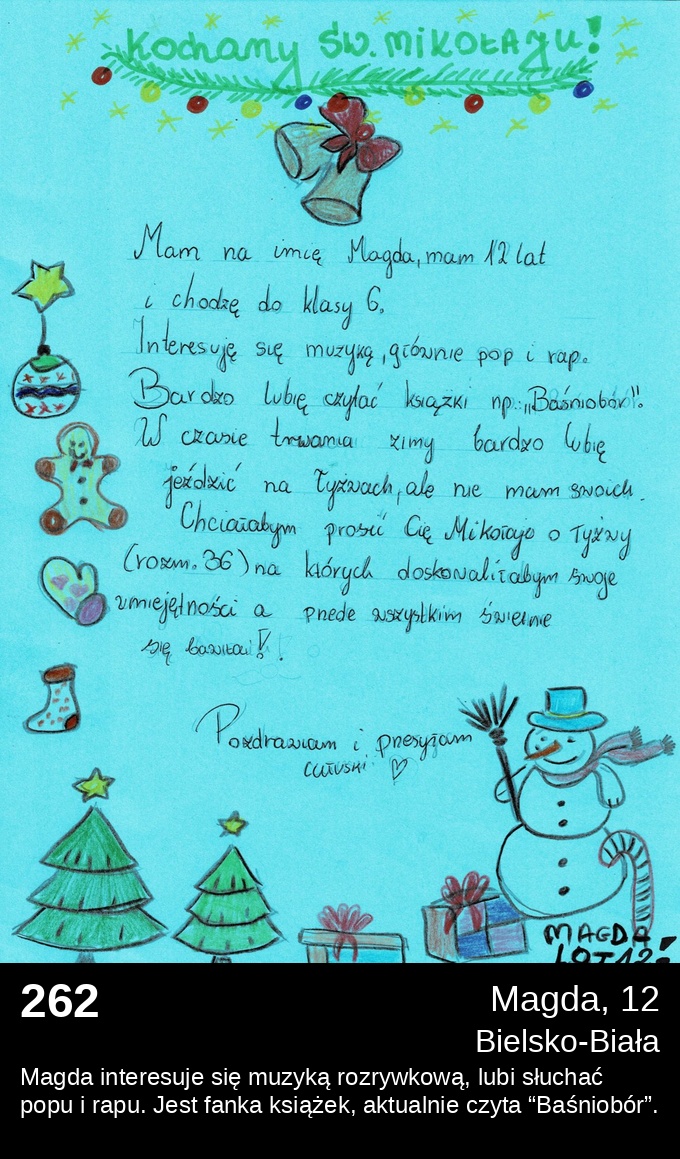 Kochamy ŚW. MIKOŁAJU!
Mam na imię Magda, mam 12 lat
i chodzę do klasy 6.
Interesuję się muzyką, głównie pop i rap.
Bardzo lubię czytać książki np. „Baśniobór".
W czasie trwania zimy bardzo lubię
jeździć na łyżwach, ale nie mam swoich.
Chciałabym prosić Cię Mikołaju o łyżwy
(rozm. 36) na których doskonaliłabym swoje
umiejętności a przede wszystkim świetnie
się bawiła!!
Pozdrawiam i przesyłam
całuski ♡
MAGDA
LAT 12
262
Magda, 12
Bielsko-Biała
Magda interesuje się muzyką rozrywkową, lubi słuchać
popu i rapu. Jest fanka książek, aktualnie czyta “Baśniobór”.